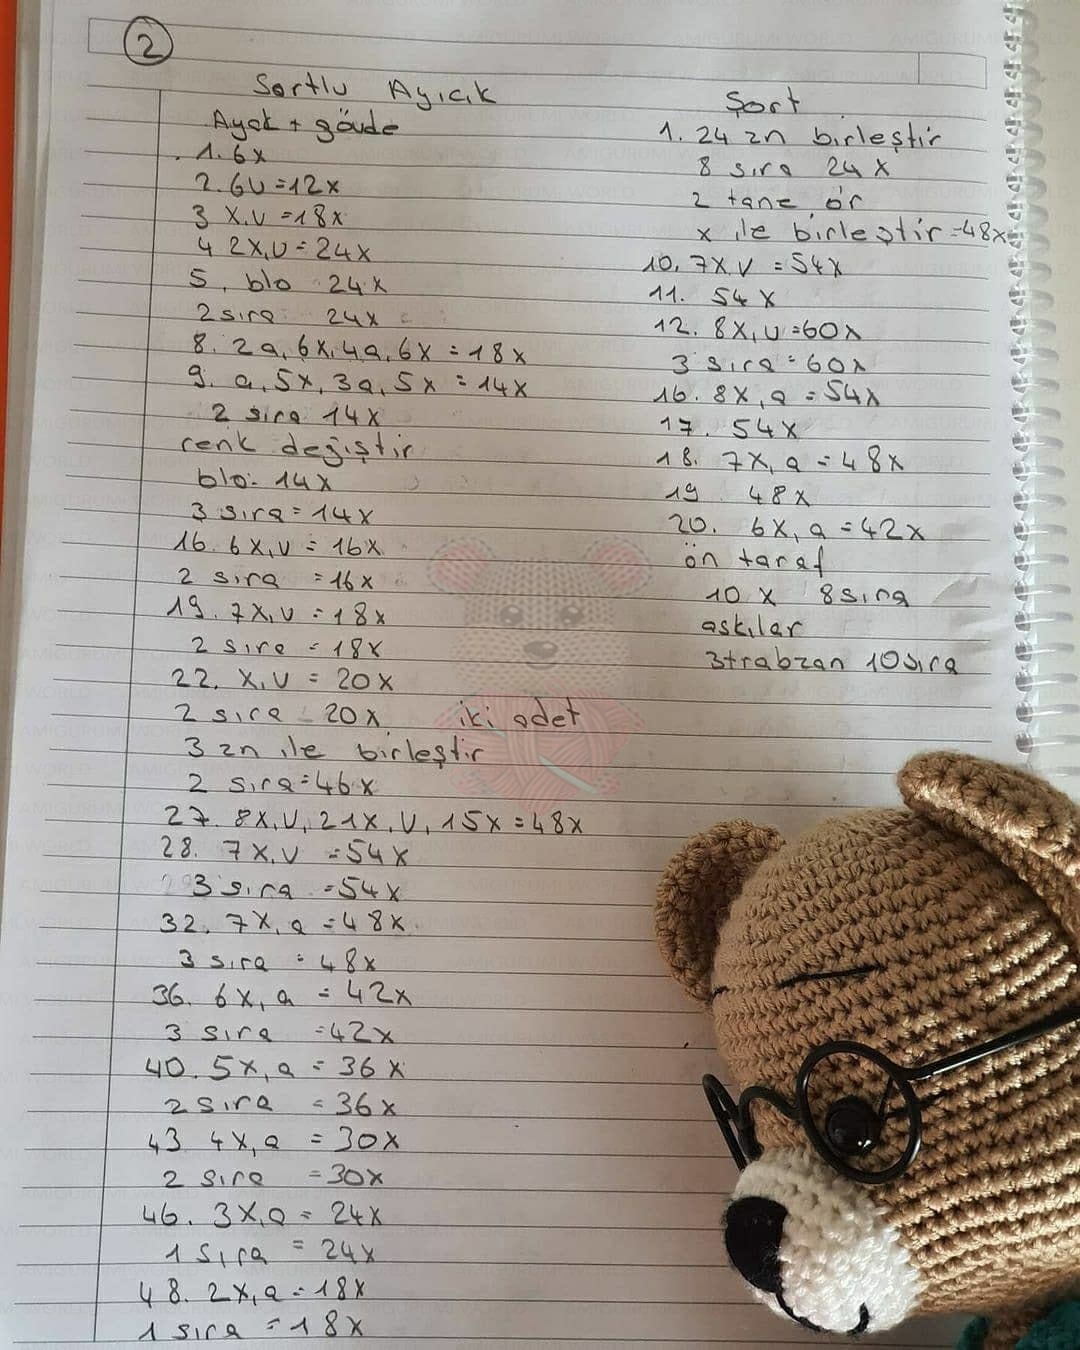 2
Sortlu Ayıcık
Ayak + gövde
1. 6x
2. 6v = 12x
3 x,v = 18x
4 2x,v = 24x
5. blo 24x
2 sıra 24x
8. 2a, 6x, 4a, 6x = 18x
9. a, 5x, 3a, 5x = 14x
2 sıra 14x
renk değiştir
blo: 14x
3 sıra = 14x
16. 6x,v = 16x
2 sıra = 16x
19. 7x,v = 18x
2 sıra = 18x
22. x,v = 20x
2 sıra 20x iki adet
3 zn ile birleştir
2 sıra = 46x
27. 8x,v, 21x, v, 15x = 48x
28. 7x,v = 54x
3 sıra = 54x
32. 7x,a = 48x
3 sıra = 48x
36. 6x, a = 42x
3 sıra = 42x
40. 5x,a = 36x
2 sıra = 36x
43 4x,a = 30x
2 sıra = 30x
46. 3x,a = 24x
1 sıra = 24x
48. 2x,a = 18x
1 sıra = 18x
Şort
1. 24 zn birleştir
8 sıra 24x
2 tane ör
x ile birleştir = 48x
10. 7x,v = 54x
11. 54x
12. 8x,v = 60x
3 sıra = 60x
16. 8x,a = 54x
17. 54x
18. 7x,a = 48x
19 48x
20. 6x,a = 42x
ön taraf
10 x 8sıra
askılar
3trabzan 10sıra